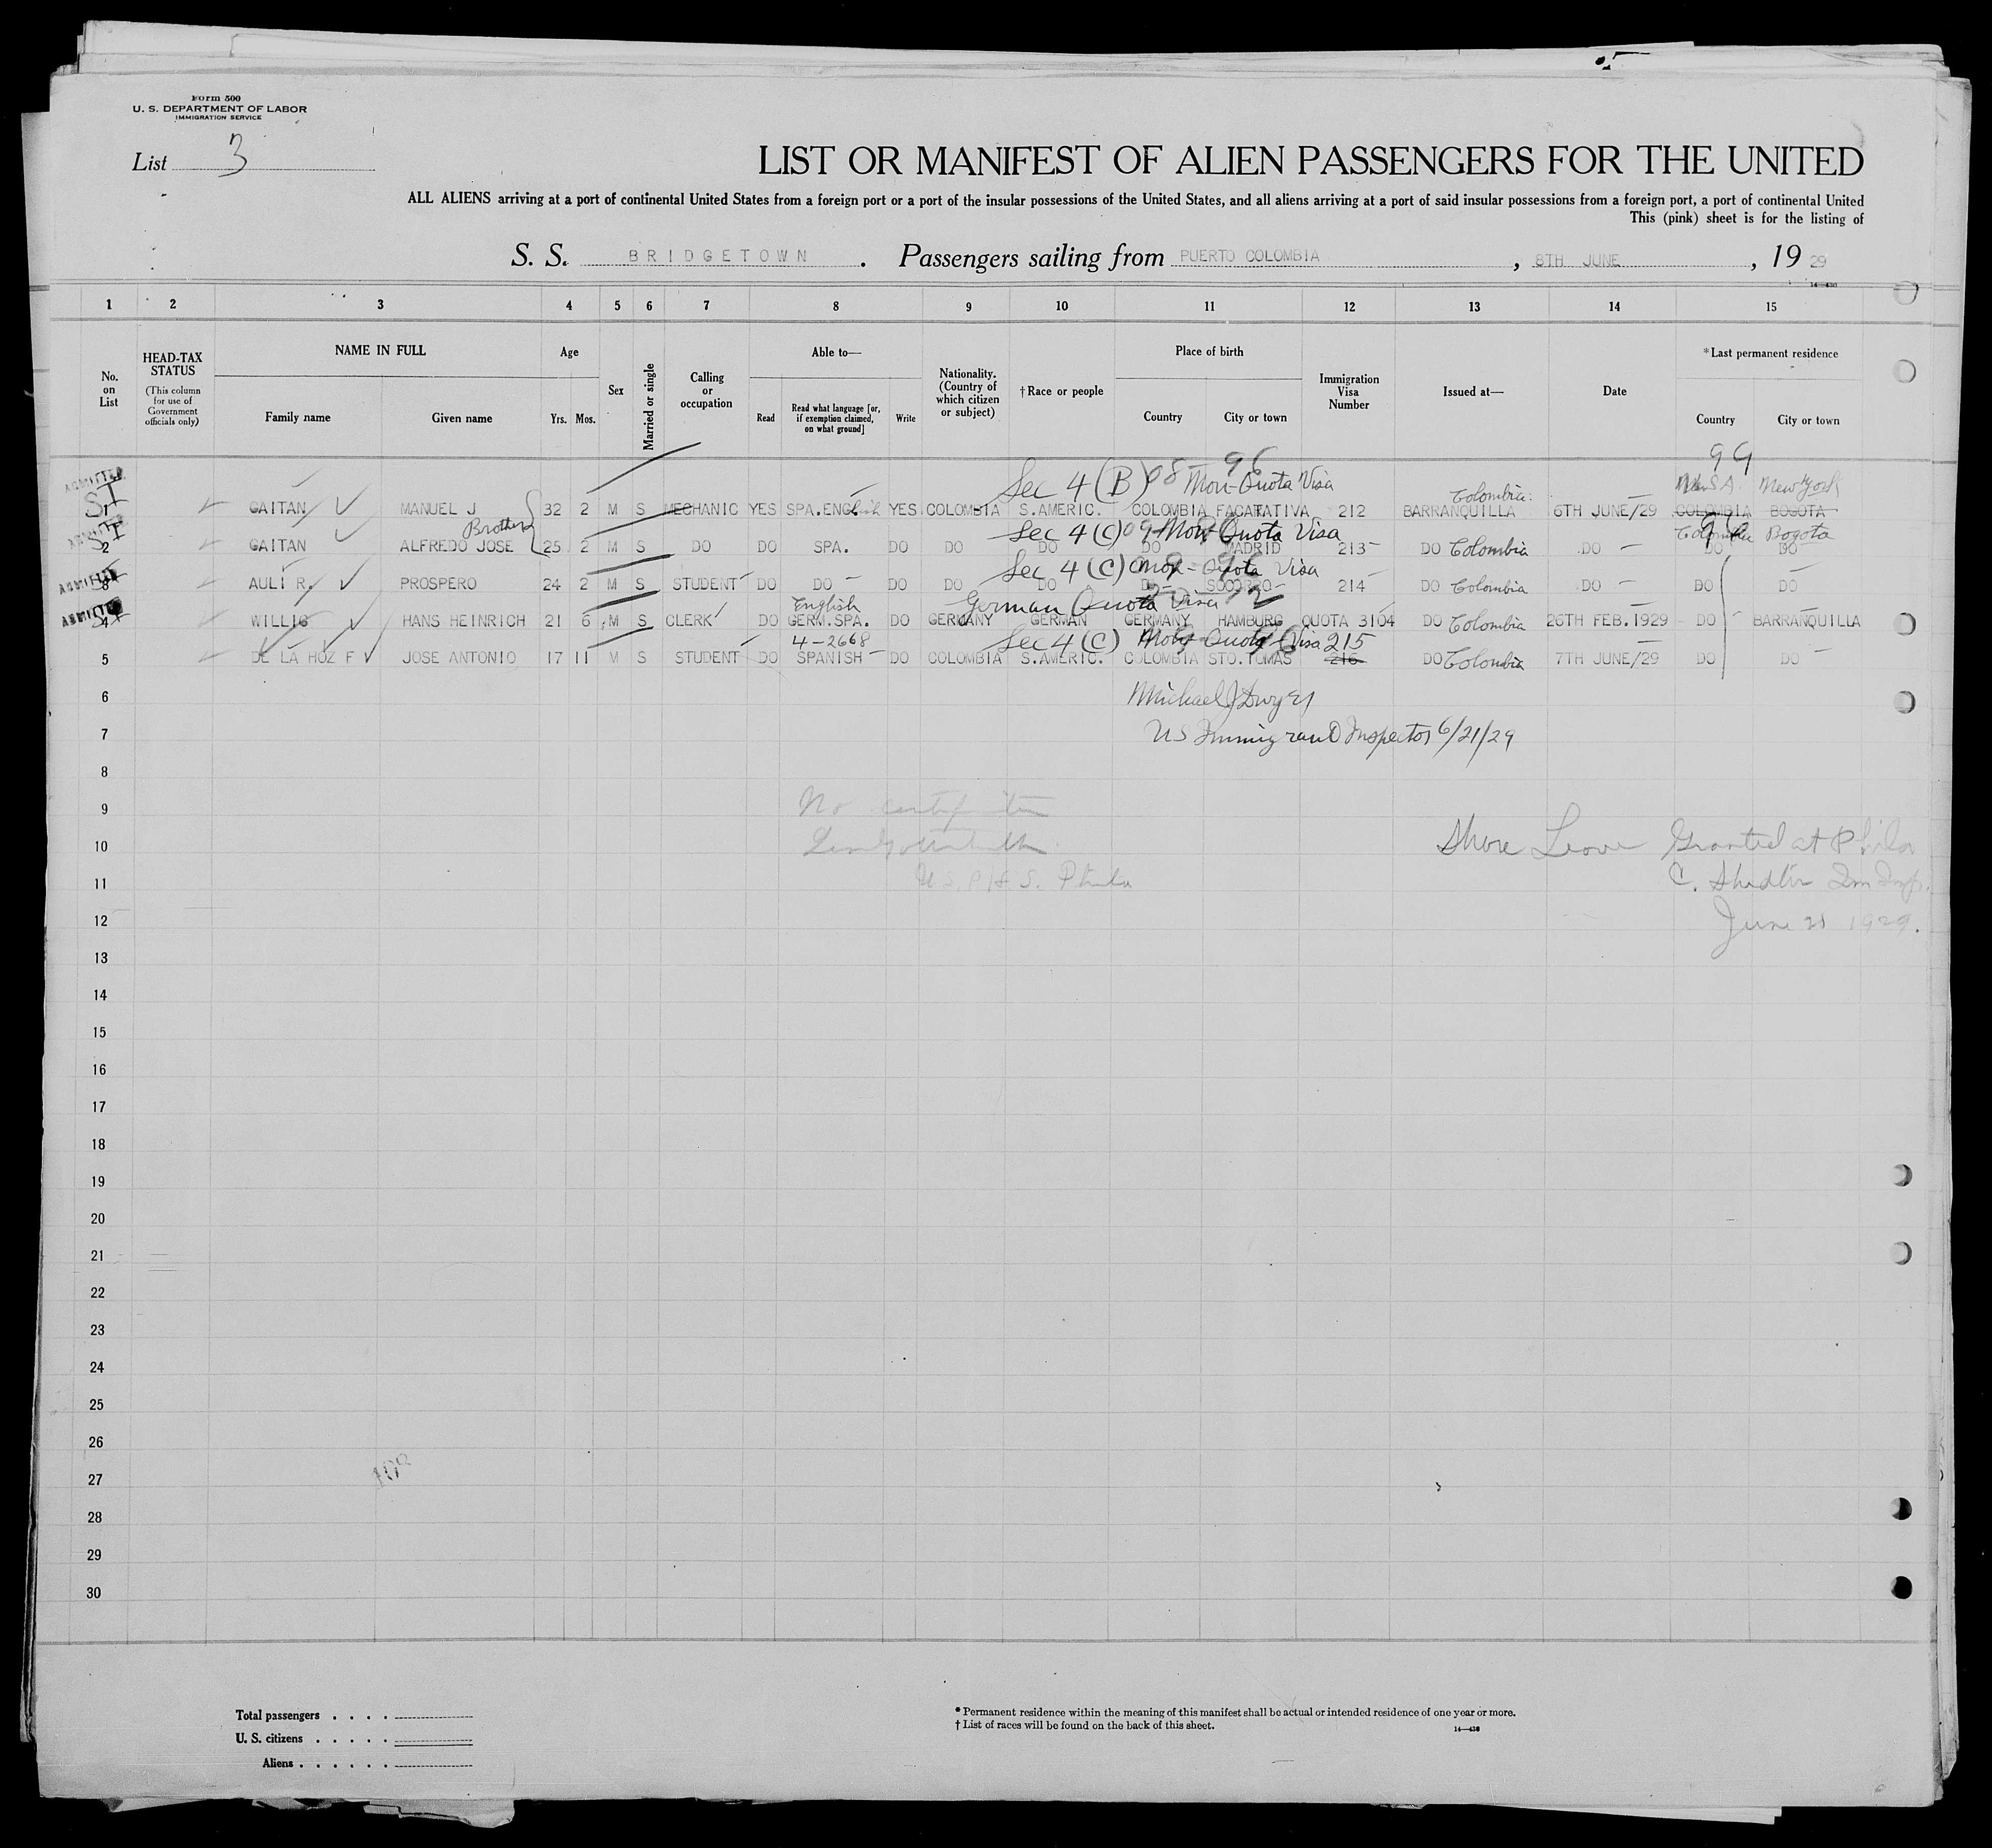 Form 500
U. S. DEPARTMENT OF LABOR
IMMIGRATION SERVICE
List 3
LIST OR MANIFEST OF ALIEN PASSENGERS FOR THE UNITED
ALL ALIENS arriving at a port of continental United States from a foreign port or a port of the insular possessions of the United States, and all aliens arriving at a port of said insular possessions from a foreign port, a port of continental United
This (pink) sheet is for the listing of
S. S. BRIDGETOWN. Passengers sailing from PUERTO COLOMBIA, 8TH JUNE, 19 29
14—430
1 2 3 4 5 6 7 8 9 10 11 12 13 14 15
No. on List
HEAD-TAX STATUS
(This column for use of Government officials only)
NAME IN FULL
Family name Given name
Age
Yrs. Mos.
Sex
Married or single
Calling or occupation
Able to—
Read Read what language [or, if exemption claimed, on what ground] Write
Nationality. (Country of which citizen or subject)
† Race or people
Place of birth
Country City or town
Immigration Visa Number
Issued at—
Date
*Last permanent residence
Country City or town
98-96 99
Sec 4 (B) Non-Quota Visa Colombia. U.S.A. New York
ADMITTED SI 1 GAITAN MANUEL J 32 2 M S MECHANIC YES SPA.ENGlish YES COLOMBIA S.AMERIC. COLOMBIA FACATATIVA 212 BARRANQUILLA 6TH JUNE/29 COLOMBIA BOGOTA
Brothers Sec 4 (C) Non Quota Visa Colombia Bogota
SI 2 GAITAN ALFREDO JOSE 25 2 M S DO DO SPA. DO DO DO DO MADRID 213 DO Colombia DO DO DO
Sec 4 (C) Non-Quota Visa
ADMITTED 3 AULI R. PROSPERO 24 2 M S STUDENT DO DO DO DO DO DO SOCORRO 214 DO Colombia DO DO DO
English German Quota Visa
ADMITTED 4 WILLIG HANS HEINRICH 21 6 M S CLERK DO GERM.SPA. DO GERMANY GERMAN GERMANY HAMBURG QUOTA 3104 DO Colombia 26TH FEB.1929 DO BARRANQUILLA
4-2668 Sec 4 (C) Non-Quota Visa 215
5 DE LA HOZ F JOSE ANTONIO 17 11 M S STUDENT DO SPANISH DO COLOMBIA S.AMERIC. COLOMBIA STO.TOMAS 216 DO Colombia 7TH JUNE/29 DO DO
6 Michael J Dwyer
7 US Immigrant Inspector 6/21/29
8
9 No
10 Shore Leave Granted at Phila
11 U.S.P.H.S. Phila C. Shadtir Im Insp.
12 June 21 1929.
13
14
15
16
17
18
19
20
21
22
23
24
25
26
27
28
29
30
Total passengers . . . .
U. S. citizens . . . . .
Aliens . . . . . .
* Permanent residence within the meaning of this manifest shall be actual or intended residence of one year or more.
† List of races will be found on the back of this sheet.
14—430